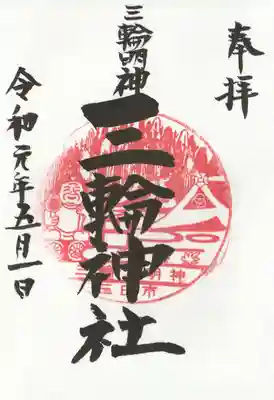 奉拝
三輪明神
三輪神社
令和元年五月一日
明神
三日市